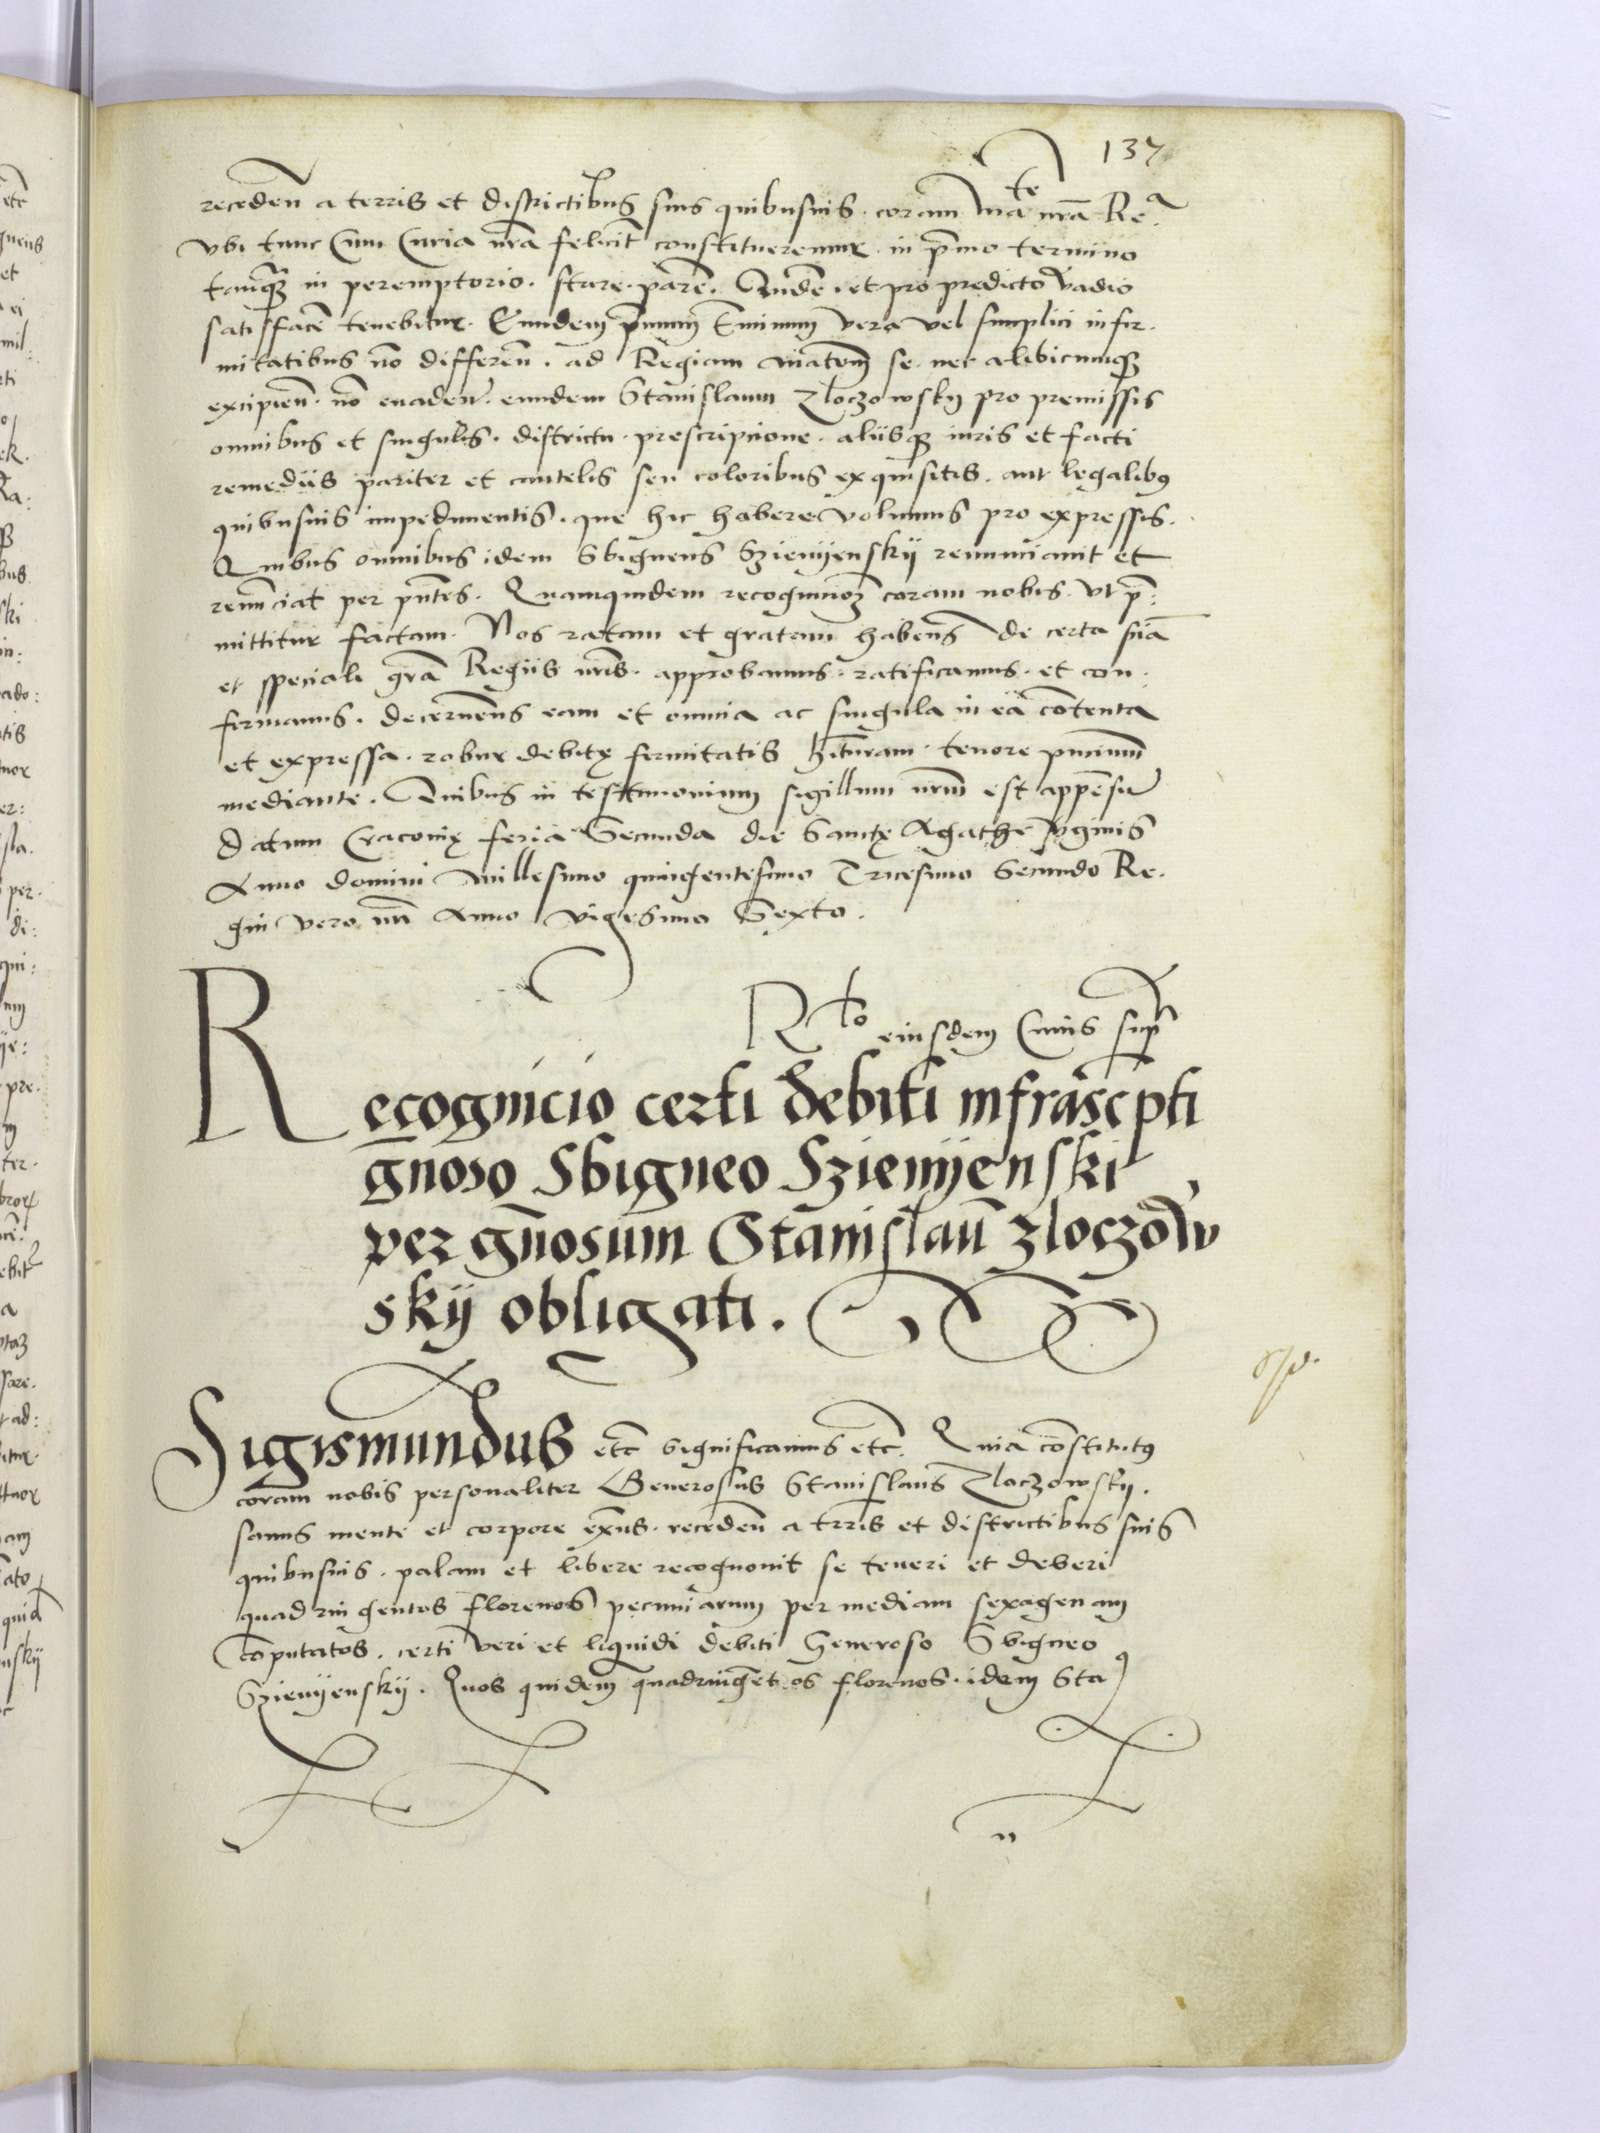 137
receden̄ a terris et districtibus suis quibusuis. coram Mate nr̄a Rea
vbi tunc cum Curia nr̄a felicit̄ constitueremur. in p̄mo termino
tanq̄ꝫ in peremptorio. stare. parēre. Iudē. et pro predicto vadio
satisfacē tenebitur. Eundem p̄mum t̄minum vera vel simplici infir.
mitatibus nō differen̄. ad Regiam Matem̄ se. nec alibicunqꝫ
excipien̄. nō euaden̄. eundem Stanislaum Zloczowsky pro premissis
omnibus et singulis. districtu. prescripcione. aliisqꝫ iuris et facti
remediis pariter et cautelis seu coloribus exquisitis. aut legalibꝰ
quibusuis impedimentis. que hic habere volumus pro expressis.
Quibus omnibus idem Sbigneus Szienyensky renunciauit et
renūciat per pn̄tes. Quamquidem recognicioꝫ coram nobis. vt p̄:
mittitur factam. Nos ratam et gratam habens de certa sn̄ā
et speciali gr̄a Regiis nr̄is. approbamus. ratificamus. et con.
firmamus. decernens eam et omnia ac singula in eā cōtenta
et expressa. robur debitę firmitatis hītūram. tenore pn̄cium
mediante. Quibus in testimonium sigillum nr̄m est appēsū
Datum Cracouię feria Secunda die Sanctę Agathe vginis
Anno domini Millesimo quingentesimo Tricesimo Secundo Re.
gni vero nr̄i Anno vigesimo Sexto.
Rlto eiusdem Cuius supra
Recognicio certi debiti infrascpti
gnoso Sbigneo Szienyenski
per gn̄osum Stanislaū Zloczow
sky obligati.
Sigismundus etc̄ significamus etc̄. Quia cōstitutꝰ
coram nobis personaliter Generosus Stanislaus Zloczowsky.
sanus mente et corpore ex̄ns. receden̄ a trris et districtibus suis
quibusuis. palam et libere recognouit se teneri et deberi
quadringentos florenos pecuniarum per mediam sexagenam
cōputatos. certi veri et liquidi debiti Generoso Sbigneo
Szienyensky. Quos quidem quadringētos florenos. idem Sta